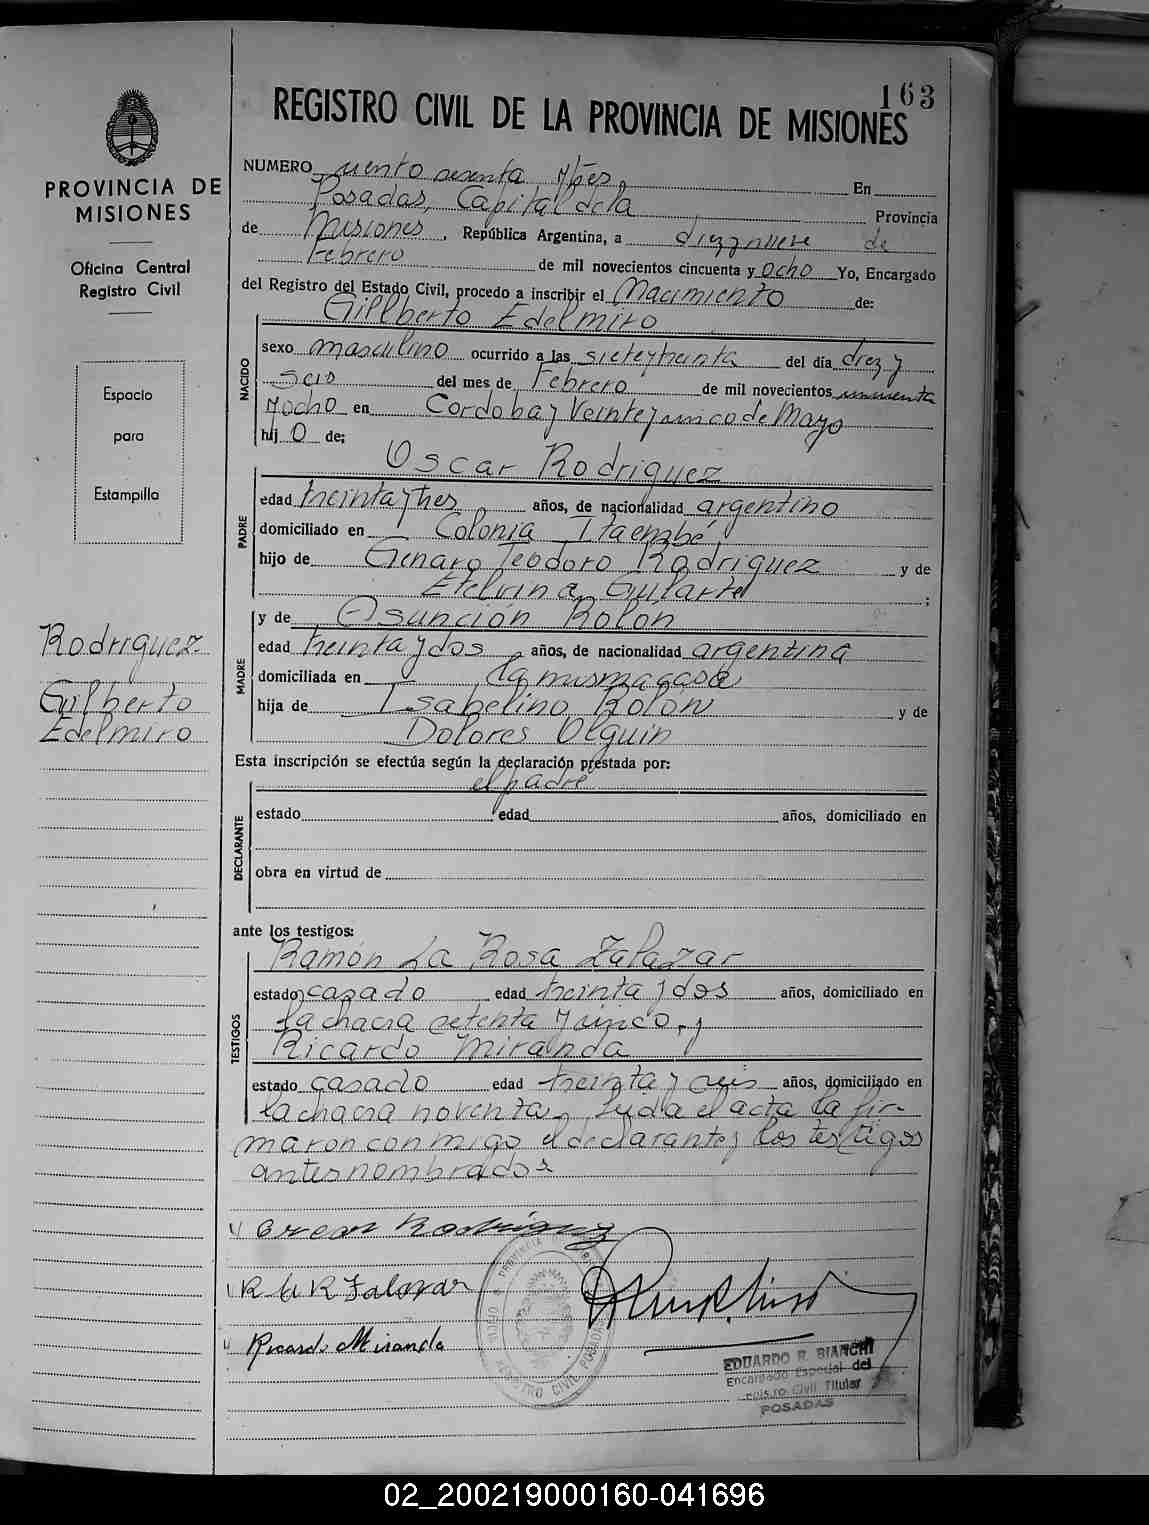 163
REGISTRO CIVIL DE LA PROVINCIA DE MISIONES
PROVINCIA DE
MISIONES
Oficina Central
Registro Civil
Espacio
para
Estampilla
Rodriguez
Gilberto
Edelmiro
NUMERO ciento sesenta y tres En
Posadas, Capital de la Provincia
de Misiones, República Argentina, a diez y nueve de
Febrero de mil novecientos cincuenta y ocho Yo, Encargado
del Registro del Estado Civil, procedo a inscribir el Nacimiento de:
Gillberto Edelmiro
NACIDO
sexo masculino ocurrido a las siete y treinta del día diez y
seis del mes de Febrero de mil novecientos cincuenta
y ocho en Cordoba y Veinte y cinco de Mayo
hijo de:
Oscar Rodriguez
PADRE
edad treinta y tres años, de nacionalidad argentino
domiciliado en Colonia Itaembé,
hijo de Genaro Teodoro Rodriguez y de
Etelvina Gularte ;
y de Asunción Rolón
MADRE
edad treinta y dos años, de nacionalidad argentina
domiciliada en la misma casa
hija de Isabelino Rolón y de
Dolores Olguin
Esta inscripción se efectúa según la declaración prestada por:
el padre
DECLARANTE
estado edad años, domiciliado en
obra en virtud de
ante los testigos:
Ramón La Rosa Zalazar
TESTIGOS
estado casado edad treinta y dos años, domiciliado en
la chacra setenta y cinco, y
Ricardo Miranda
estado casado edad treinta y seis años, domiciliado en
la chacra noventa. Leida el acta la fir-
maron conmigo el declarante y los testigos
antes nombrados
Oscar Rodriguez
R L R Zalazar
Ricardo Miranda
REGISTRO CIVIL POSADAS
EDUARDO R. BIANCHI
Encargado Especial del
Registro Civil Titular
POSADAS
02_200219000160-041696